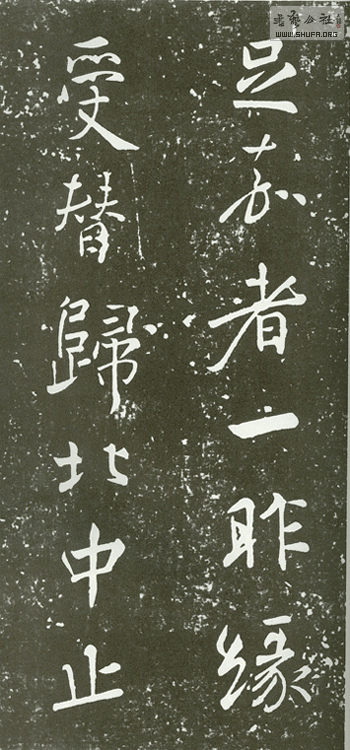 書藝公社
WWW.SHUFA.ORG
足者一昨緣
受替歸北中止